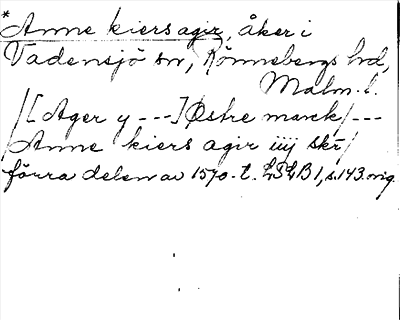 *Anne kiers agir, åker i
Vadensjö sn, Rönnebergs hd,
Malm. l.
/[Ager y ---] Østre marck/ ---
/Anne kiers agir iiij skr/
förra delen av 1570-t. LSLB 1, s. 143. orig.